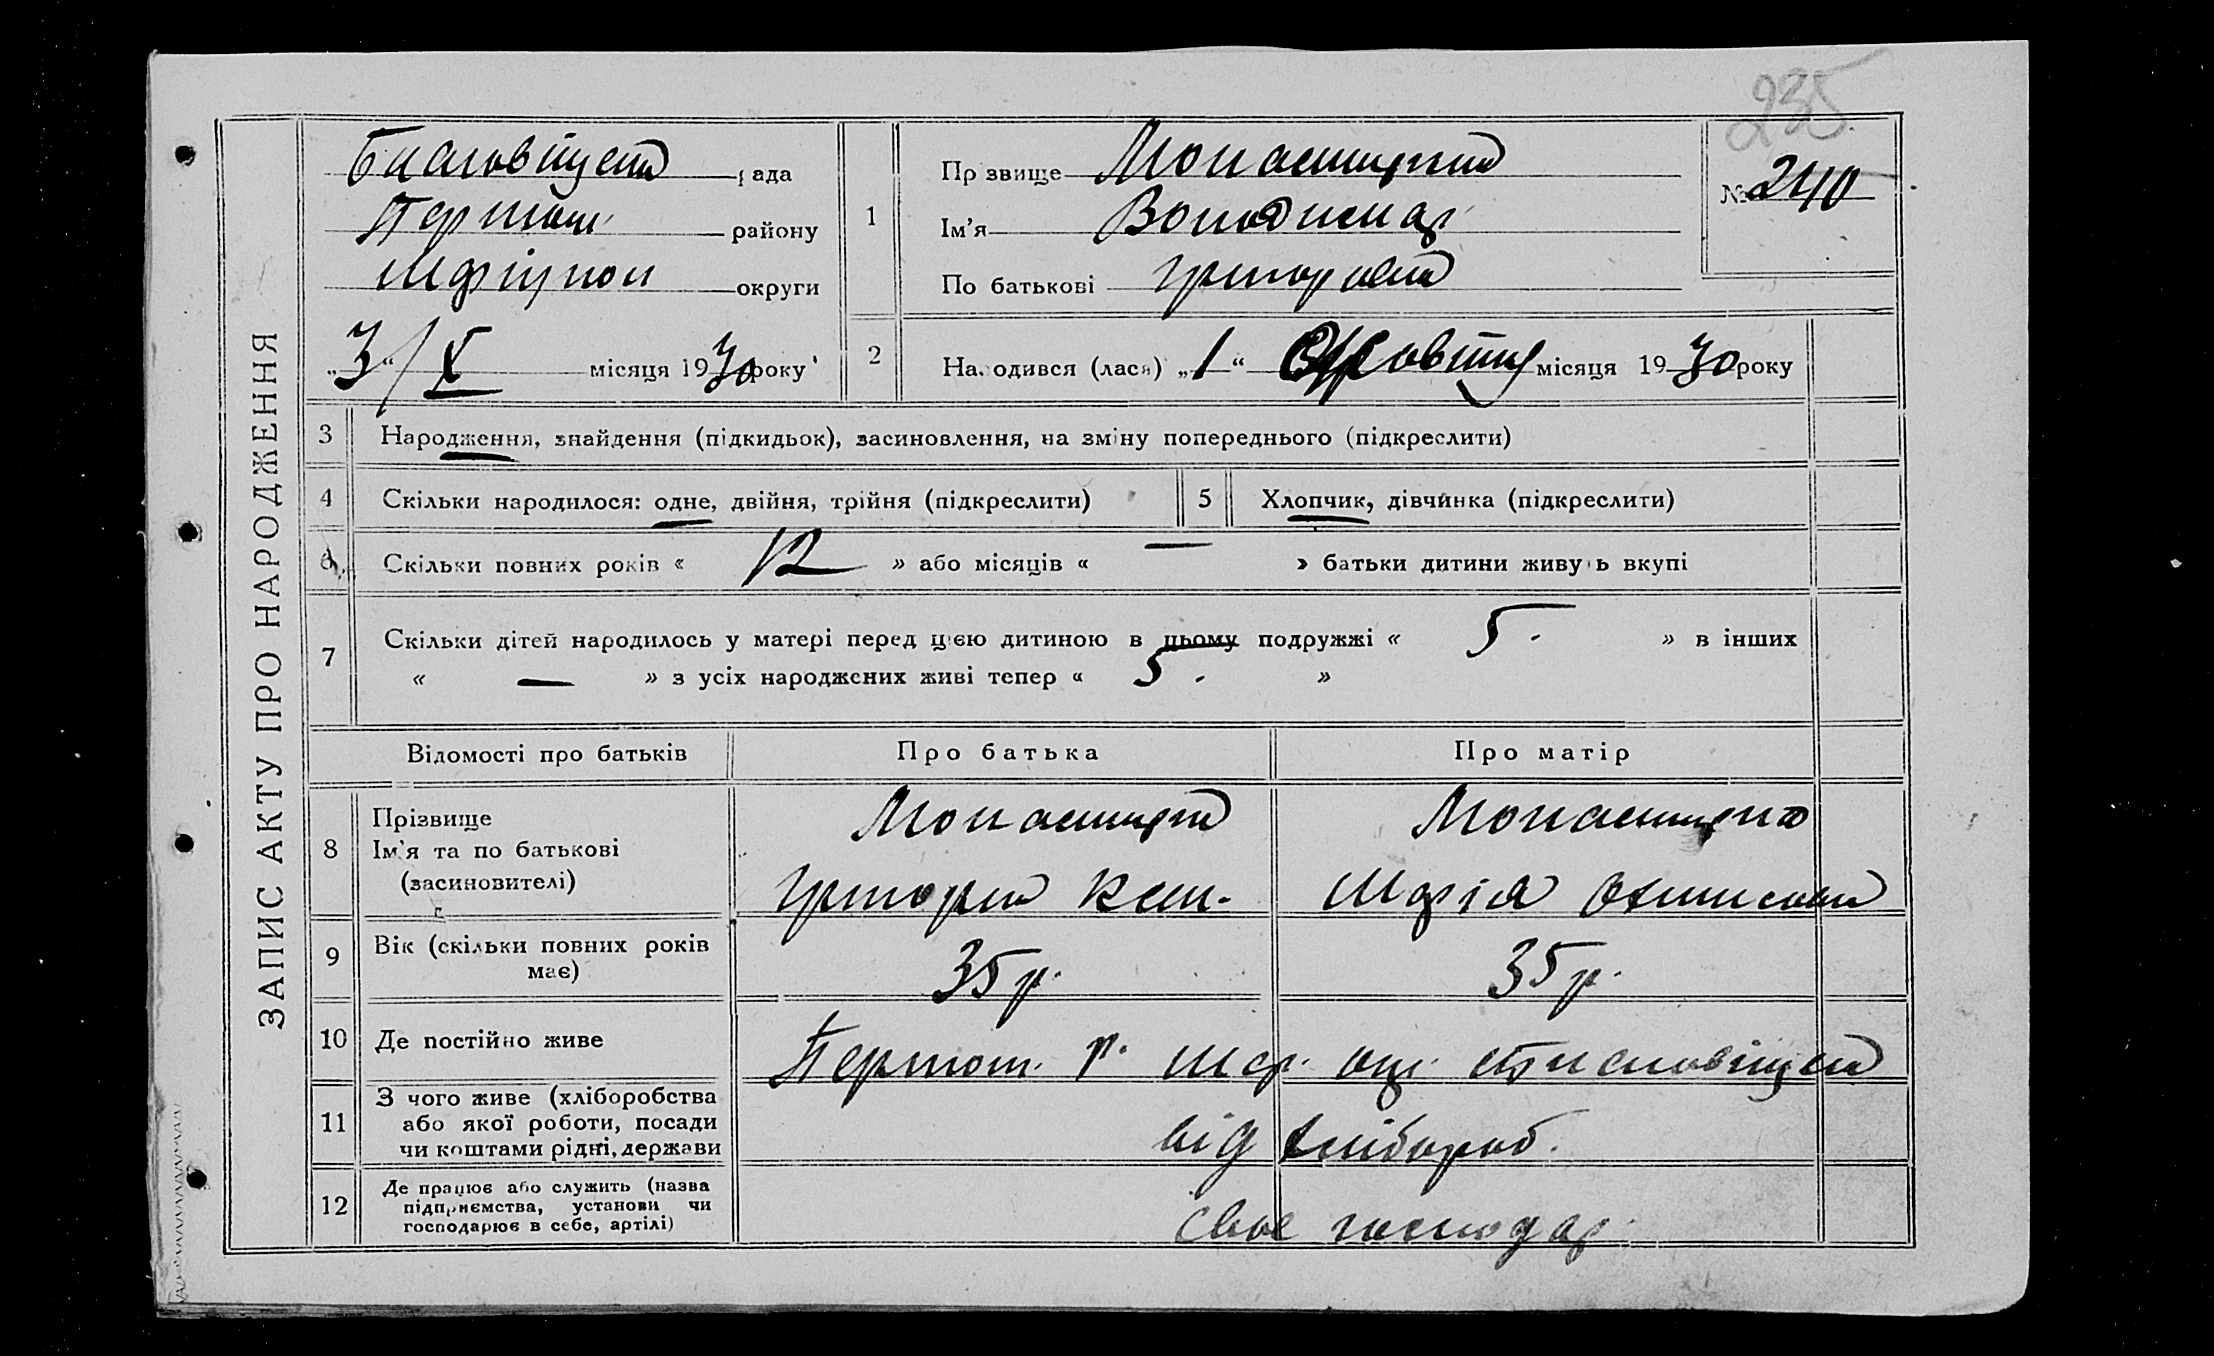 235
Благовіщен рада
Першот району
Маріупол округи
„3“/X місяця 1930 року
1
Прізвище Монастирський
Ім'я Володимир
По батькові Григоров
№ 240
2
Народився (лася) „1“ Жовтня місяця 1930 року
ЗАПИС АКТУ ПРО НАРОДЖЕННЯ
3 Народження, знайдення (підкидьок), засиновлення, на зміну попереднього (підкреслити)
4 Скільки народилося: одне, двійня, трійня (підкреслити) 5 Хлопчик, дівчинка (підкреслити)
6 Скільки повних років « 12 » або місяців « — » батьки дитини живуть вкупі
7 Скільки дітей народилось у матері перед цією дитиною в цьому подружжі « 5. » в інших
« — » з усіх народжених живі тепер « 5. »
Відомості про батьків Про батька Про матір
8 Прізвище
Ім'я та по батькові
(засиновителі)
Григорій
Марія
9 Вік (скільки повних років
має)
35 р. 35 р.
10 Де постійно живе
Першот. р. Мар. окр.
11 З чого живе (хліборобства
або якої роботи, посади
чи коштами рідні, держави
від хлібороб.
12 Де працює або служить (назва
підприємства, установи чи
господарює в себе, артілі)
своє господар.